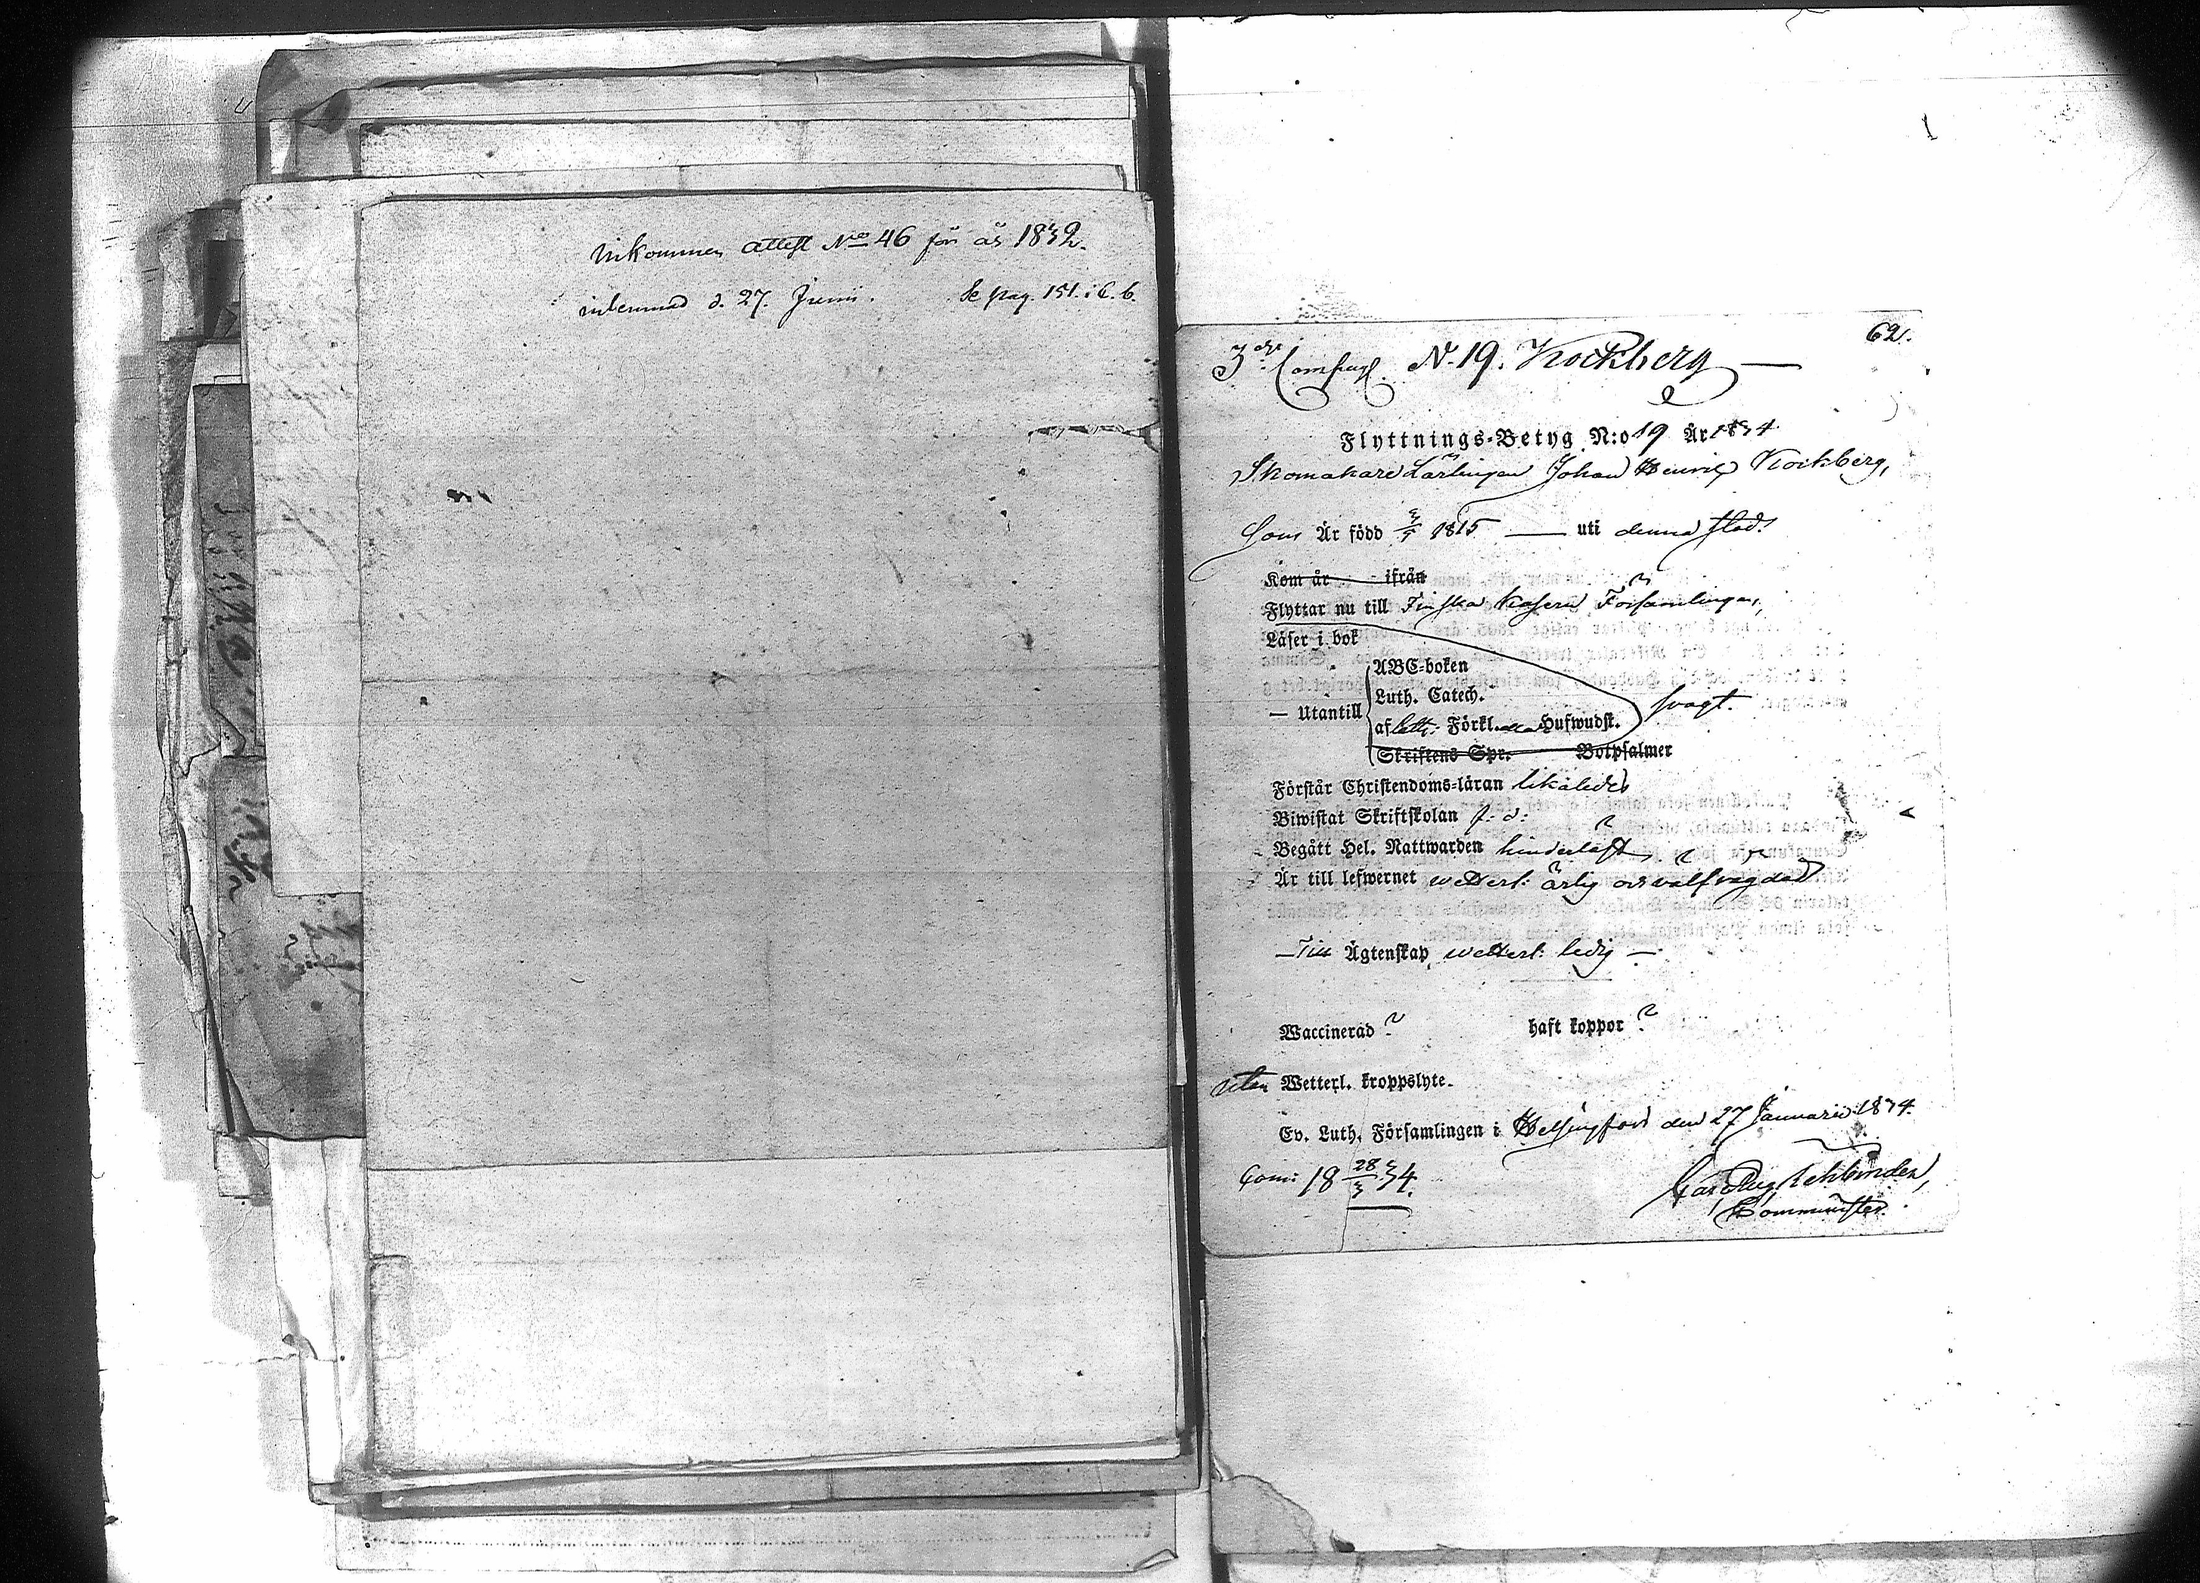 Inkommen attest No 46 för år 1832.
inlemnad d. 27. Junii. Se pag. 151. i C. b.
62.
3dje Compagt. N. 19. Kockberg
Flyttnings-Betyg N:o 19 År 1834
Skomakare Lärlingen Johan Henric Kockberg,
som Är född 1815 — uti denna stad.
Kom år ifrån
Flyttar nu till Finska Kasern Församlingen,
Läser i bok
ABC-boken
Luth. Catech.
— Utantill
af Förkl. Hufwudst.
svagt.
Skriftens Spr. Botpsalmer
Förstår Christendoms-läran likaledes
Biwistat Skriftskolan f. d:
Begått Hel. Nattwarden
Är till lefwernet wetterl: ärlig och välfrägdad
— Till Ägtenskap wetterl: ledig —
Waccinerad ? haft koppor ?
utan Wetterl. kroppslyte.
Ev. Luth. Församlingen i Helsingfors den 27 Januarii 1834.
18 28/3 34.
Rehbinder,
Comminister.